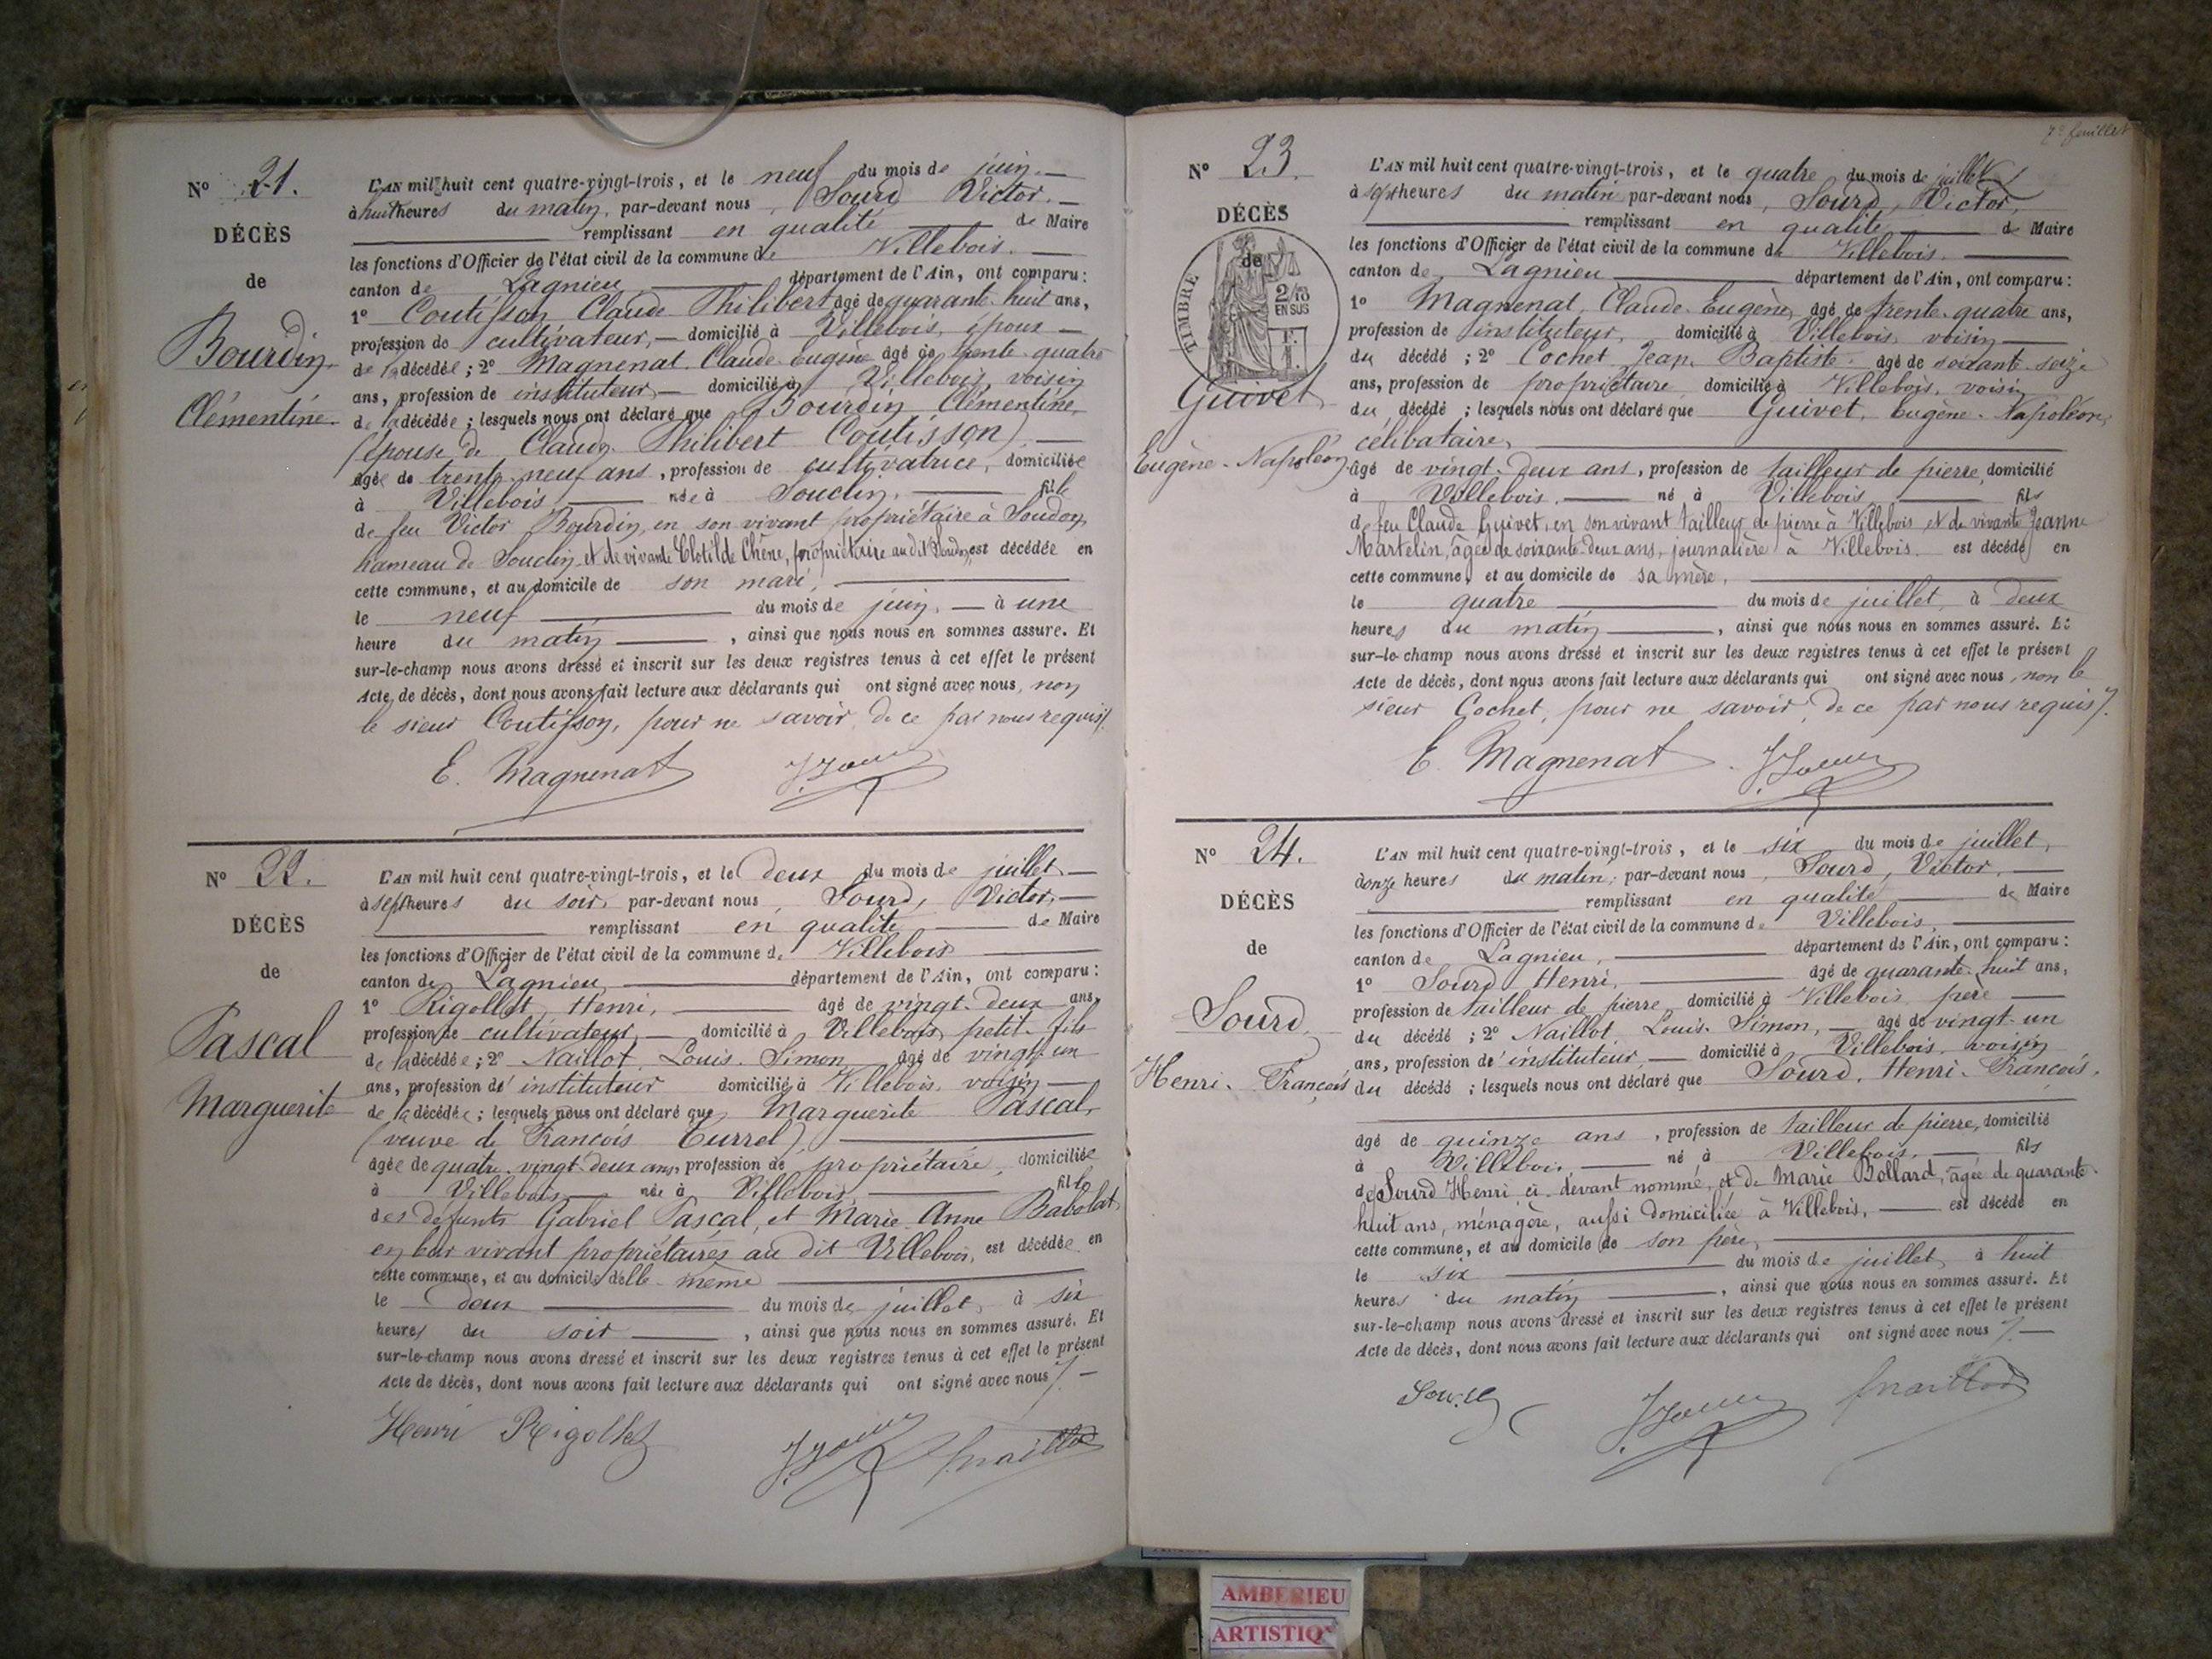 N° 21.
DÉCÈS
de
Bourdin
Clémentine.
L'AN mil huit cent quatre-vingt-trois, et le neuf du mois de juin.
à huit heures du matin, par-devant nous, Sourd Victor.
remplissant en qualité de Maire
les fonctions d'Officier de l'état civil de la commune de Villebois.
canton de Lagnieu, département de l'Ain, ont comparu:
1° Coutisson Claude Philibert, âgé de quarante-huit ans,
profession de cultivateur, domicilié à Villebois, époux
de la décédée; 2° Magnenat Claude Eugène âgé de trente-quatre
ans, profession de instituteur, domicilié à Villebois, voisin
de la décédée; lesquels nous ont déclaré que Bourdin Clémentine,
(épouse de Claude Philibert Coutisson),
âgée de trente-neuf ans, profession de cultivatrice, domiciliée
à Villebois, née à Souclin, fille
de feu Victor Bourdin, en son vivant propriétaire à Soudon,
hameau de Souclin, et de vivante Clotilde Chêne, propriétaire au dit Soudon, est décédée en
cette commune, et au domicile de son mari,
le neuf du mois de juin, à une
heure du matin, ainsi que nous nous en sommes assuré. Et
sur-le-champ nous avons dressé et inscrit sur les deux registres tenus à cet effet le présent
Acte de décès, dont nous avons fait lecture aux déclarants qui ont signé avec nous, non
le sieur Coutisson, pour ne savoir, de ce par nous requis.
E. Magnenat
N° 22.
DÉCÈS
de
Pascal
Marguerite
L'AN mil huit cent quatre-vingt-trois, et le deux du mois de juillet
à sept heures du soir, par-devant nous, Sourd, Victor,
remplissant en qualité de Maire
les fonctions d'Officier de l'état civil de la commune de Villebois
canton de Lagnieu, département de l'Ain, ont comparu:
1° Rigollet, Henri, âgé de vingt-deux ans,
profession de cultivateur, domicilié à Villebois, petit-fils
de la décédée; 2° Naillot, Louis-Simon, âgé de vingt-un
ans, profession d'instituteur domicilié à Villebois, voisin
de la décédée; lesquels nous ont déclaré que Marguerite Pascal,
(veuve de François Currel),
âgée de quatre-vingt-deux ans, profession de propriétaire, domiciliée
à Villebois, née à Villebois, fille
des défunts Gabriel Pascal, et Marie-Anne Babolat,
en leur vivant propriétaires au dit Villebois, est décédée en
cette commune, et au domicile d'elle-même
le deux du mois de juillet, à six
heures du soir, ainsi que nous nous en sommes assuré. Et
sur-le-champ nous avons dressé et inscrit sur les deux registres tenus à cet effet le présent
Acte de décès, dont nous avons fait lecture aux déclarants qui ont signé avec nous
Henri Rigollet
7e feuillet
N° 23.
DÉCÈS
de
TIMBRE
2/10
EN SUS
Guivet
Eugène-Napoléon
L'AN mil huit cent quatre-vingt-trois, et le quatre du mois de juillet
à sept heures du matin par-devant nous, Sourd, Victor,
remplissant en qualité de Maire
les fonctions d'Officier de l'état civil de la commune de Villebois.
canton de Lagnieu département de l'Ain, ont comparu:
1° Magnenat, Claude-Eugène, âgé de trente-quatre ans,
profession de instituteur, domicilié à Villebois, voisin
du décédé; 2° Cochet Jean-Baptiste âgé de soixante-seize
ans, profession de propriétaire domicilié à Villebois, voisin
du décédé; lesquels nous ont déclaré que Guivet, Eugène-Napoléon,
célibataire,
âgé de vingt-deux ans, profession de tailleur de pierre, domicilié
à Villebois, né à Villebois, fils
de feu Claude Guivet, en son vivant tailleur de pierre à Villebois et de vivante Jeanne
Martelin, âgée de soixante-deux ans, journalière à Villebois. est décédé en
cette commune, et au domicile de sa mère,
le quatre du mois de juillet, à deux
heures du matin, ainsi que nous nous en sommes assuré. Et
sur-le-champ nous avons dressé et inscrit sur les deux registres tenus à cet effet le présent
Acte de décès, dont nous avons fait lecture aux déclarants qui ont signé avec nous, non le
sieur Cochet, pour ne savoir, de ce par nous requis.
E. Magnenat
N° 24.
DÉCÈS
de
Sourd,
Henri-François
L'AN mil huit cent quatre-vingt-trois, et le six du mois de juillet,
à onze heures du matin, par-devant nous, Sourd, Victor,
remplissant en qualité de Maire
les fonctions d'Officier de l'état civil de la commune de Villebois,
canton de Lagnieu, département de l'Ain, ont comparu:
1° Sourd Henri, âgé de quarante-huit ans,
profession de tailleur de pierre, domicilié à Villebois père
du décédé; 2° Naillot, Louis-Simon, âgé de vingt-un
ans, profession d'instituteur, domicilié à Villebois, voisin
du décédé; lesquels nous ont déclaré que Sourd, Henri-François,
âgé de quinze ans, profession de tailleur de pierre, domicilié
à Villebois, né à Villebois, fils
de Sourd Henri ci-devant nommé, et de Marie Bollard, âgée de quarante-
huit ans, ménagère, aussi domiciliée à Villebois, est décédé en
cette commune, et au domicile de son père,
le six du mois de juillet, à huit
heures du matin, ainsi que nous nous en sommes assuré. Et
sur-le-champ nous avons dressé et inscrit sur les deux registres tenus à cet effet le présent
Acte de décès, dont nous avons fait lecture aux déclarants qui ont signé avec nous
Sourd
AMBERIEU
ARTISTIQ